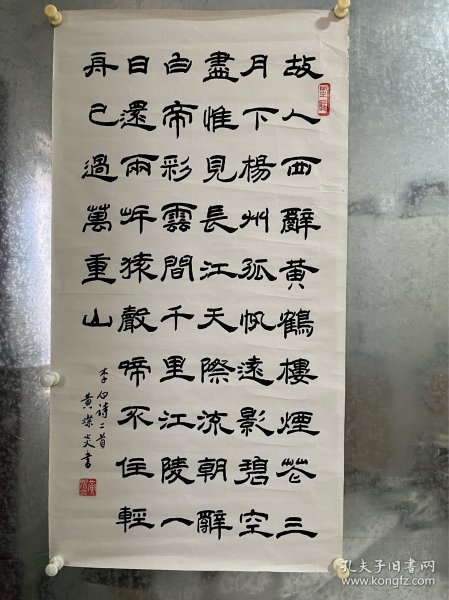 故人西辭黃鶴樓煙花三
月下楊州孤帆遠影碧空
盡惟見長江天際流朝辭
白帝彩雲間千里江陵一
日還兩岸猿聲啼不住輕
舟已過萬重山
李白诗二首
黄燦炎書
孔夫子旧书网
www.kongfz.com